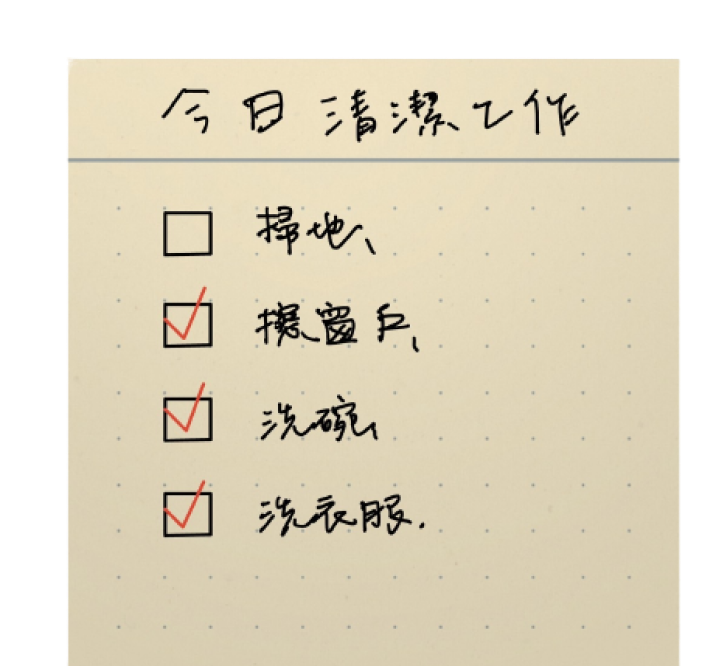 今日清潔工作
掃地、
擦窗戶、
洗碗、
洗衣服.